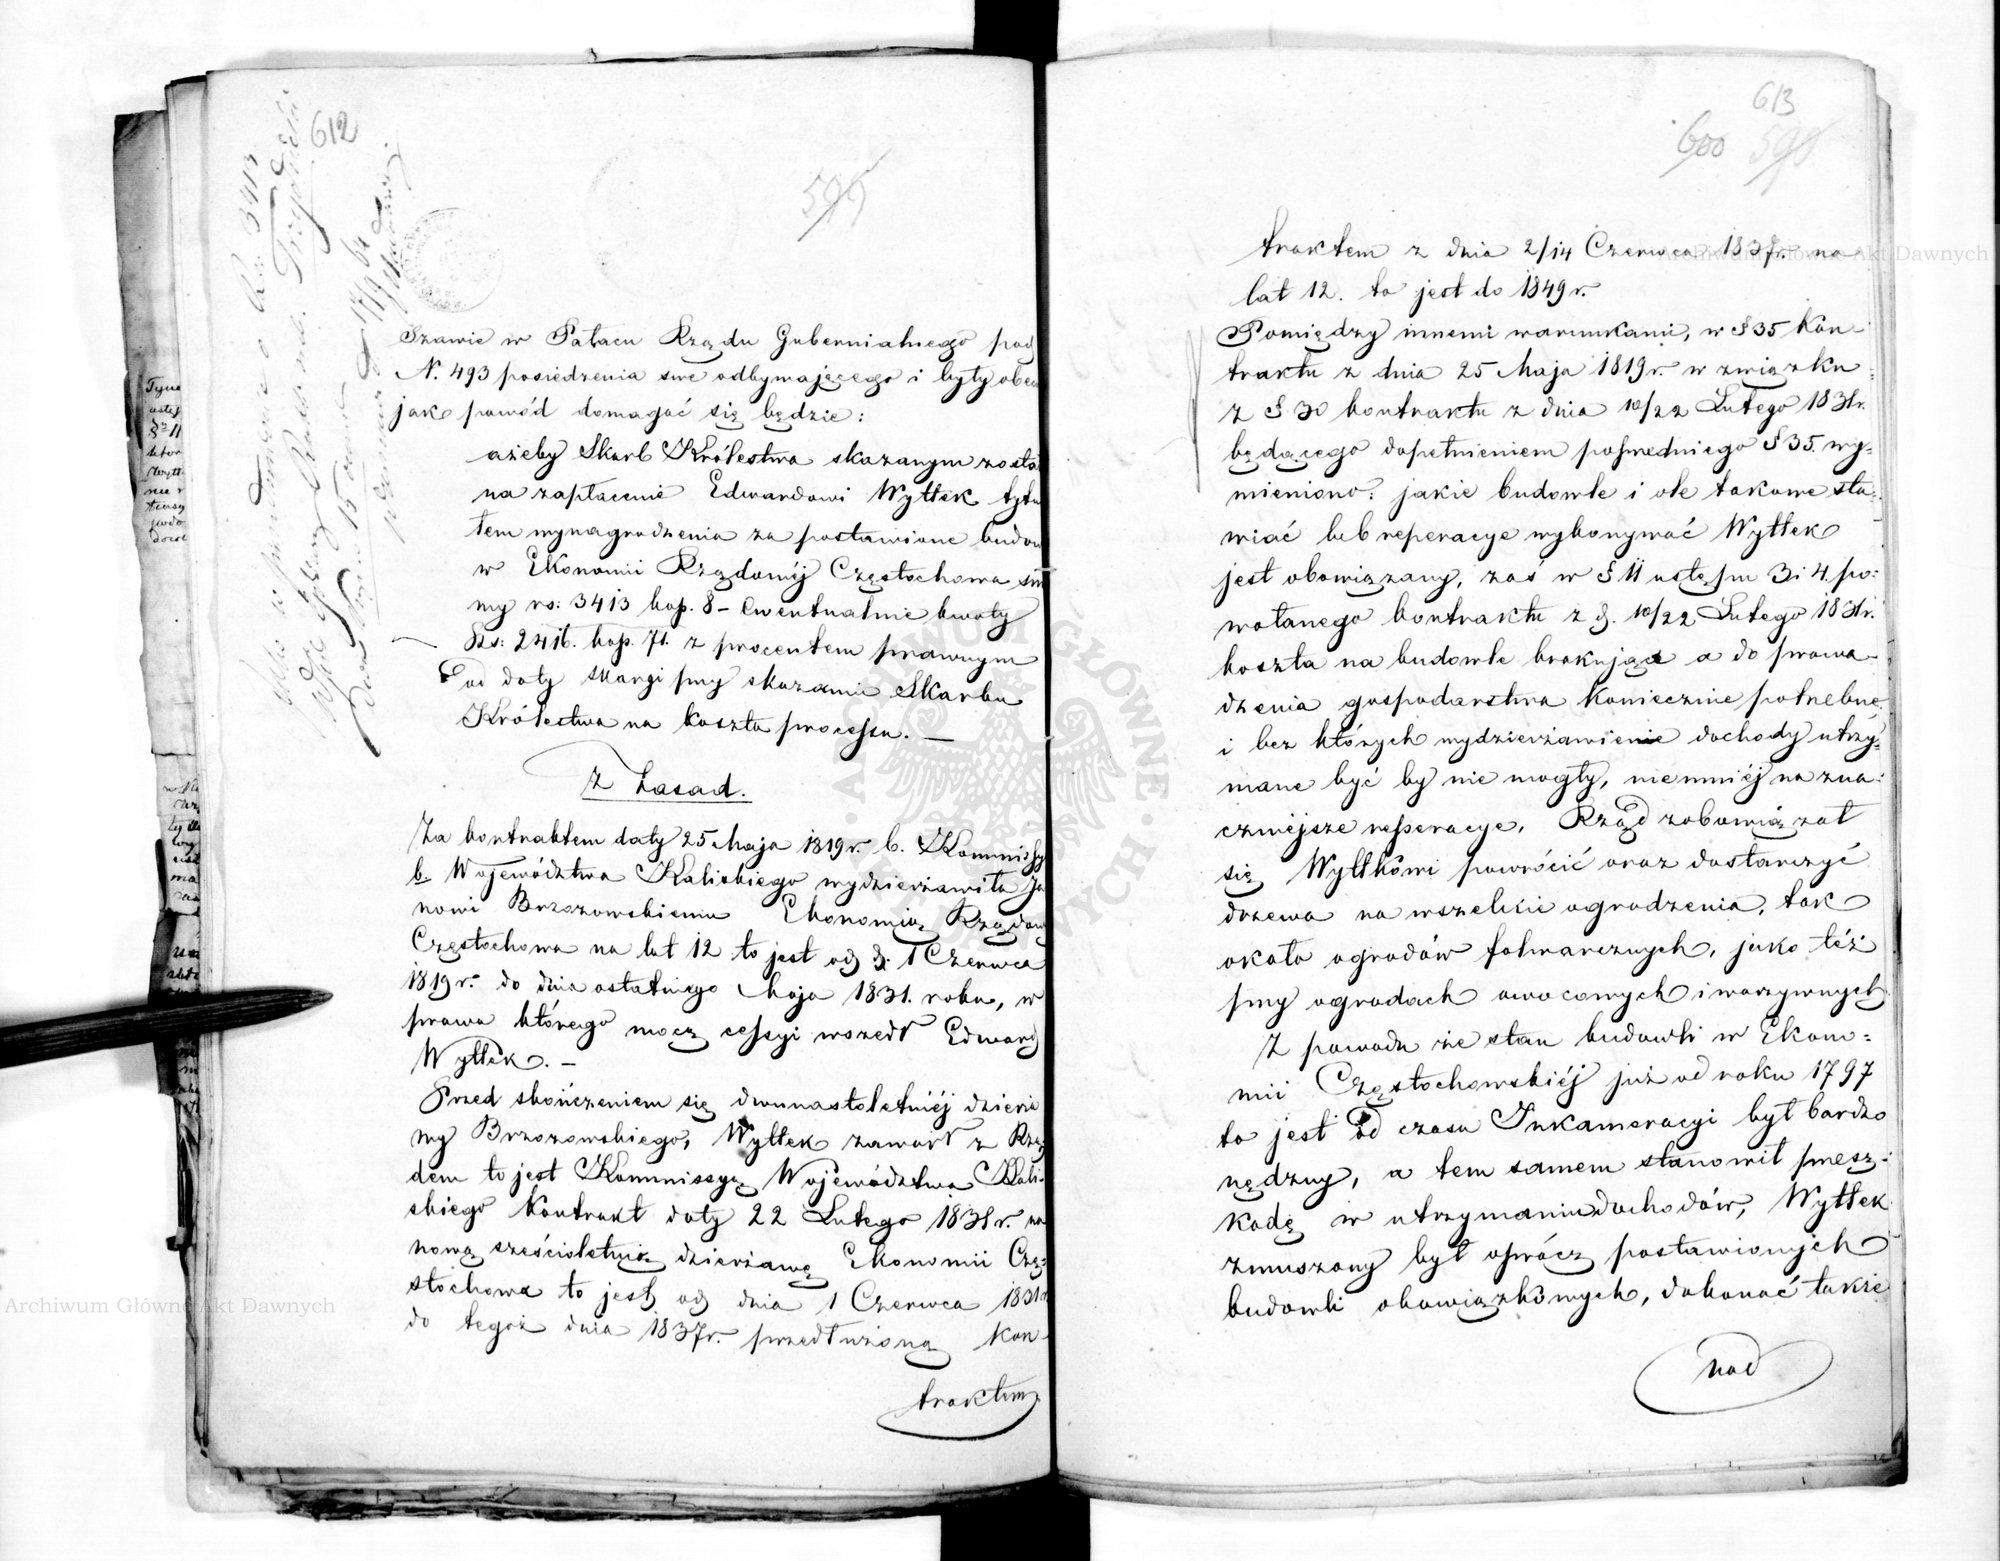 612
595
Szawie w Pałacu Rządu Gubernialnego pod
N. 493 posiedzenia swe odbywającego i były obec
jak powód domagać się będzie:
ażeby Skarb Królestwa skazanym został
na zapłacenie Edwardowi Wyttek tytu
łem wynagrodzenia za postawione budow
w Ekonomii Rządowéj Częstochowa sum
my rs: 3413 kop. 8 – ewentualnie kwoty
Rs: 2416. kop. 71. z procentem prawnym
od daty skargi przy skazaniu Skarbu
Królestwa na koszta processu. —
Z Zasad.
Za kontraktem daty 25 Maja 1819 r. b. Kommissy
b. Województwa Kaliskiego wydzierżawiła Ja
nowi Brzozowskiemu Ekonomią Rządową
Częstochowa na lat 12 to jest od d. 1 Czerwca
1819 r. do dnia ostatniego Maja 1831. roku, w
prawa którego mocą cessyi wszedł Edward
Wyttek. –
Przed skończeniem się dwunastoletniéj dzierża
wy Brzozowskiego, Wyttek zawarł z Rzą
dem to jest Kommissyą Województwa Kali-
skiego Kontrakt daty 22 Lutego 1831 r. na
nową sześcioletnią dzierżawę Ekonomii Czę-
stochowa to jest od dnia 1 Czerwca 1831 r
do tegoż dnia 1837 r. przedłużoną kon-
traktem
613
600 598
traktem z dnia 2/14 Czerwca 1837 r. na
lat 12. to jest do 1849 r.
Pomiędzy innemi warunkami, w § 35 Kon-
traktu z dnia 25 Maja 1819 r. w związku
z § 30 kontraktu z dnia 10/22 Lutego 1831 r.
będącego dopełnieniem poprzedniego § 35. wy-
mieniono: jakie budowle i ile takowe sta-
wiać lub reperacye wykonywać Wyttek
jest obowiązany, zaś w § 11 ustępu 3 i 4. po-
wołanego kontraktu z d. 10/22 Lutego 1831 r.
koszta na budowle brakujące a do prowa-
dzenia gospodarstwa koniecznie potrzebne
i bez których wydzierżawienie dochody utrzy-
mane być by nie mogły, niemniéj na zna-
czniejsze reperacye, Rząd zobowiązał
się Wyttkowi powrócić oraz dostarczyć
drzewa na wszelkie ogrodzenia, tak
około ogrodów folwarcznych, jako téż
przy ogrodach owocowych i warzywnych
Z powodu że stan budowli w Ekono-
mii Częstochowskiéj już od roku 1797
to jest od czasu Inkameracyi był bardzo
nędzny, a tem samem stanowił przesz-
kodę w utrzymaniu dochodów, Wyttek
zmuszony był oprócz postawionych
budowli obowiązkowych, dokonać takie
nad
Archiwum Główne Akt Dawnych
Archiwum Główne Akt Dawnych
ARCHIWUM GŁÓWNE AKT DAWNYCH